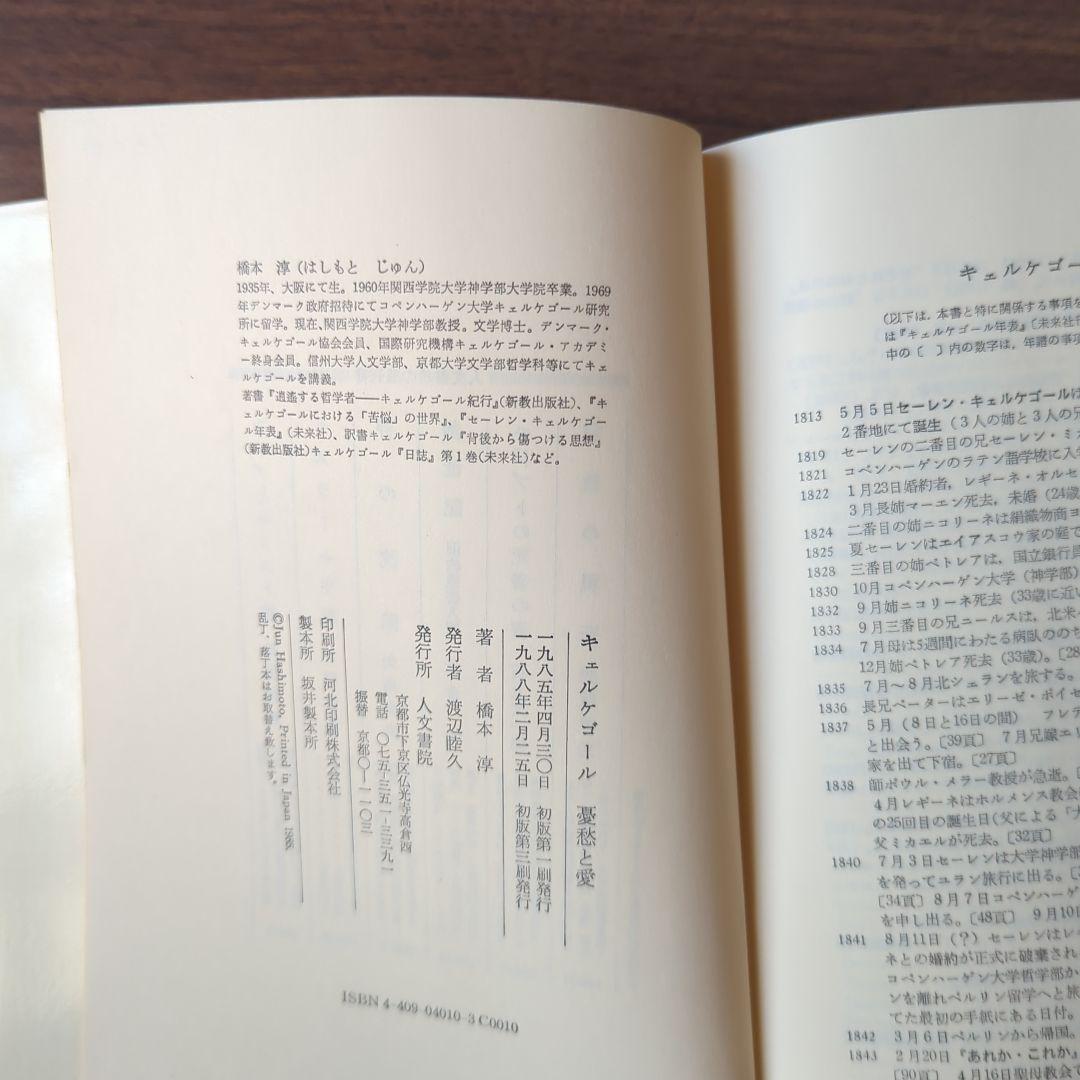 橋本 淳(はしもと じゅん)
1935年、大阪にて生。1960年関西学院大学神学部大学院卒業。1969
年デンマーク政府招待にてコペンハーゲン大学キェルケゴール研究
所に留学。現在、関西学院大学神学部教授。文学博士。デンマーク・
キェルケゴール協会会員、国際研究機構キェルケゴール・アカデミ
ー終身会員。信州大学人文学部、京都大学文学部哲学科等にてキェ
ルケゴールを講義。
著書『逍遙する哲学者――キェルケゴール紀行』(新教出版社)、『キ
ェルケゴールにおける「苦悩」の世界』、『セーレン・キェルケゴー
ル年表』(未来社)、訳書キェルケゴール『背後から傷つける思想』
(新教出版社)キェルケゴール『日誌』第1巻(未来社)など。
キェルケゴール 憂愁と愛
一九八五年四月三〇日 初版第一刷発行
一九八八年二月二五日 初版第三刷発行
著者 橋本淳
発行者 渡辺睦久
発行所 人文書院
京都市下京区仏光寺高倉西
電話 〇七五-三五一-三三九一
振替 京都〇-一一〇三
印刷所 河北印刷株式会社
製本所 坂井製本所
©Jun Hashimoto, Printed in Japan 1988.
乱丁、落丁本はお取替え致します。
ISBN 4-409-04010-3 C0010
キェルケゴー
(以下は、本書と特に関係する事項を
は『キェルケゴール年表』〔未来社刊
中の〔 〕内の数字は、年譜の事項
1813 5月5日セーレン・キェルケゴールは
2番地にて誕生(3人の姉と3人の兄
1819 セーレンの二番目の兄セーレン・ミカ
1821 コペンハーゲンのラテン語学校に入学
1822 1月23日婚約者,レギーネ・オルセ
3月長姉マーエン死去,未婚(24歳
1824 二番目の姉ニコリーネは絹織物商ヨ
1825 夏セーレンはエイアスコウ家の庭で
1828 三番目の姉ペトレアは,国立銀行員
1830 10月コペンハーゲン大学(神学部)
1832 9月姉ニコリーネ死去(33歳に近い
1833 9月三番目の兄ニールスは,北米
1834 7月母は5週間にわたる病臥ののち
12月姉ペトレア死去(33歳)。〔28
1835 7月〜8月北シェランを旅する。
1836 長兄ペーターはエリーゼ・ボイセ
1837 5月(8日と16日の間) フレデ
と出会う。〔39頁〕 7月兄嫁エリ
家を出て下宿。〔27頁〕
1838 師ポウル・メラー教授が急逝。〔
4月レギーネはホルメンス教会
の25回目の誕生日(父による「大
父ミカエルが死去。〔32頁〕
1840 7月3日セーレンは大学神学部
を発ってユラン旅行に出る。〔
〔34頁〕8月7日コペンハーゲン
を申し出る。〔48頁〕 9月10日
1841 8月11日(?)セーレンはレギ
ネとの婚約が正式に破棄され
コペンハーゲン大学哲学部か
ンを離れベルリン留学へと旅
てた最初の手紙にある日付。
1842 3月6日ベルリンから帰国。
1843 2月20日『あれか・これか』
〔90頁〕 4月16日聖母教会で